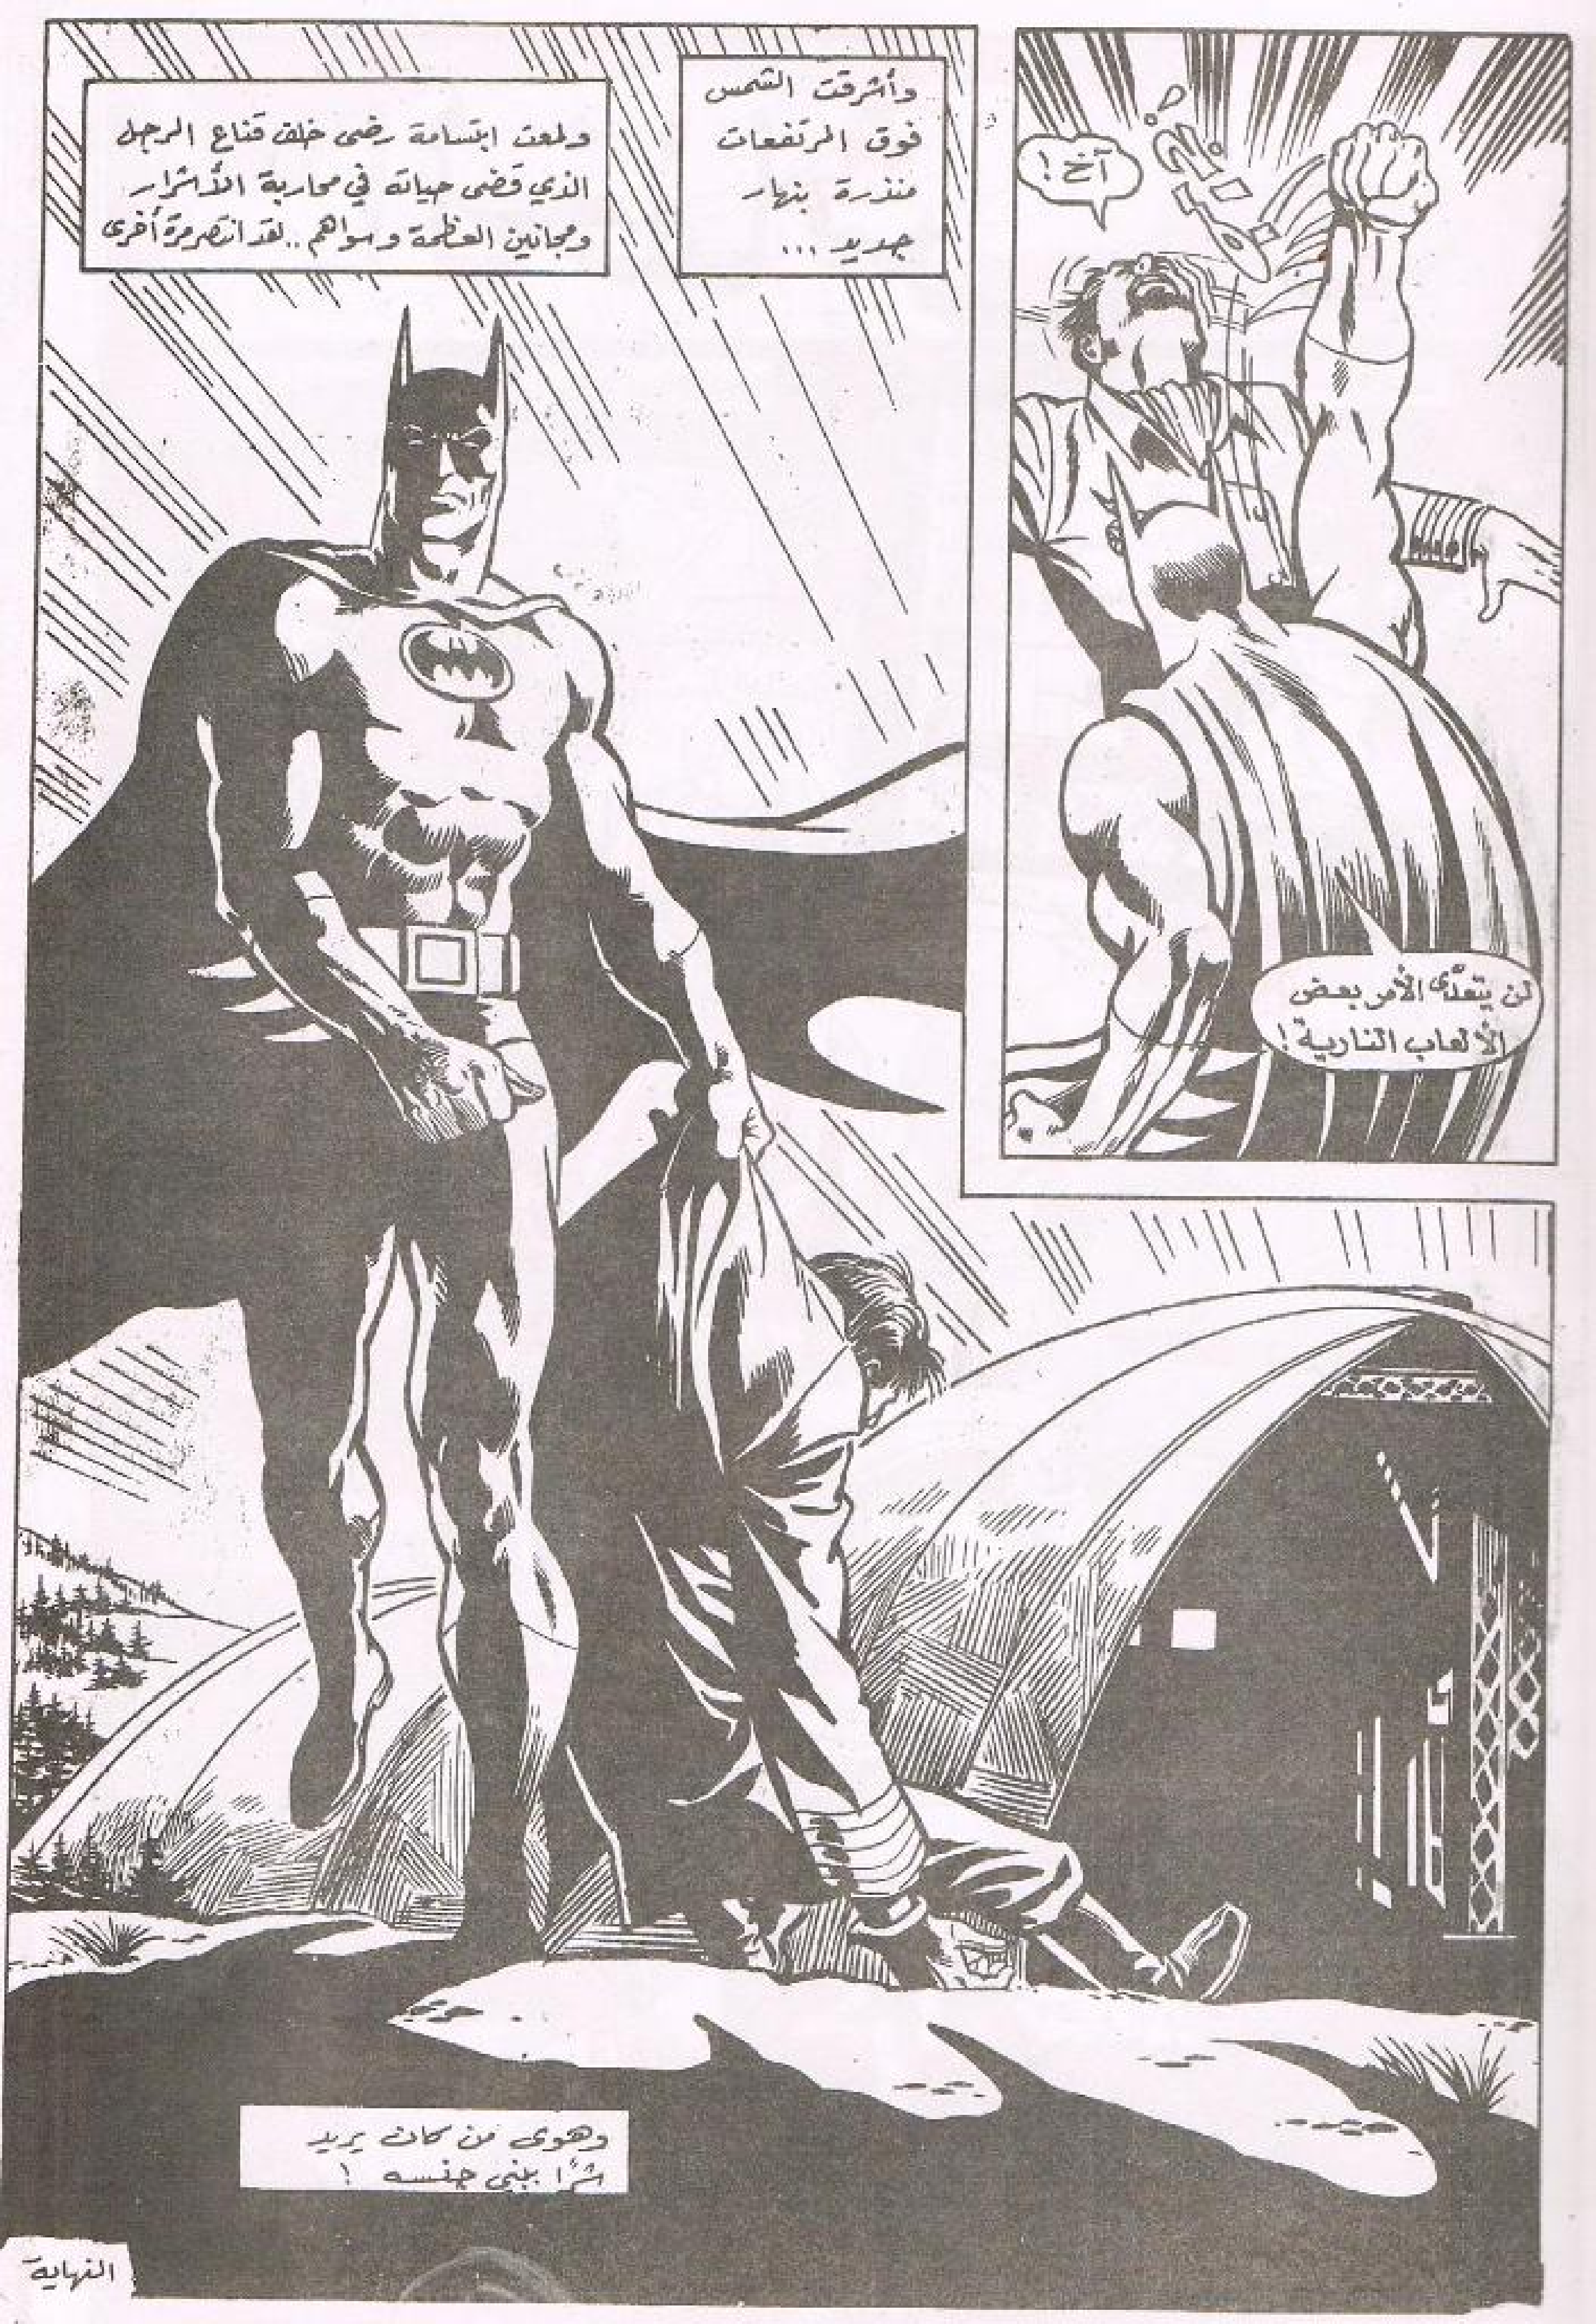 آخ !
لن يتعدَّى الأمر بعض
الألعاب النارية !
وأشرقت الشمس
فوق المرتفعات
منذرة بنهار
جديد ...
ولمعت ابتسامة رضى خلف قناع الرجل
الذي قضى حياته في محاربة الأشرار
ومجانين العظمة وسواهم .. لقد انتصر مرة أخرى
وهوى من كان يريد
شرًا ببني جنسه !
النهاية